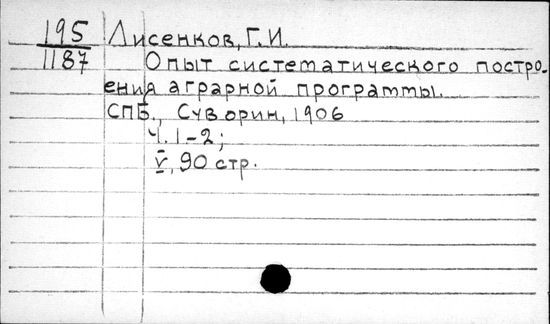 195 Лисенков, Г.И.
1187 Опыт систематического постро-
ения аграрной программы.
СПБ., Суворин, 1906
Ч. 1-2;
V, 90 стр.